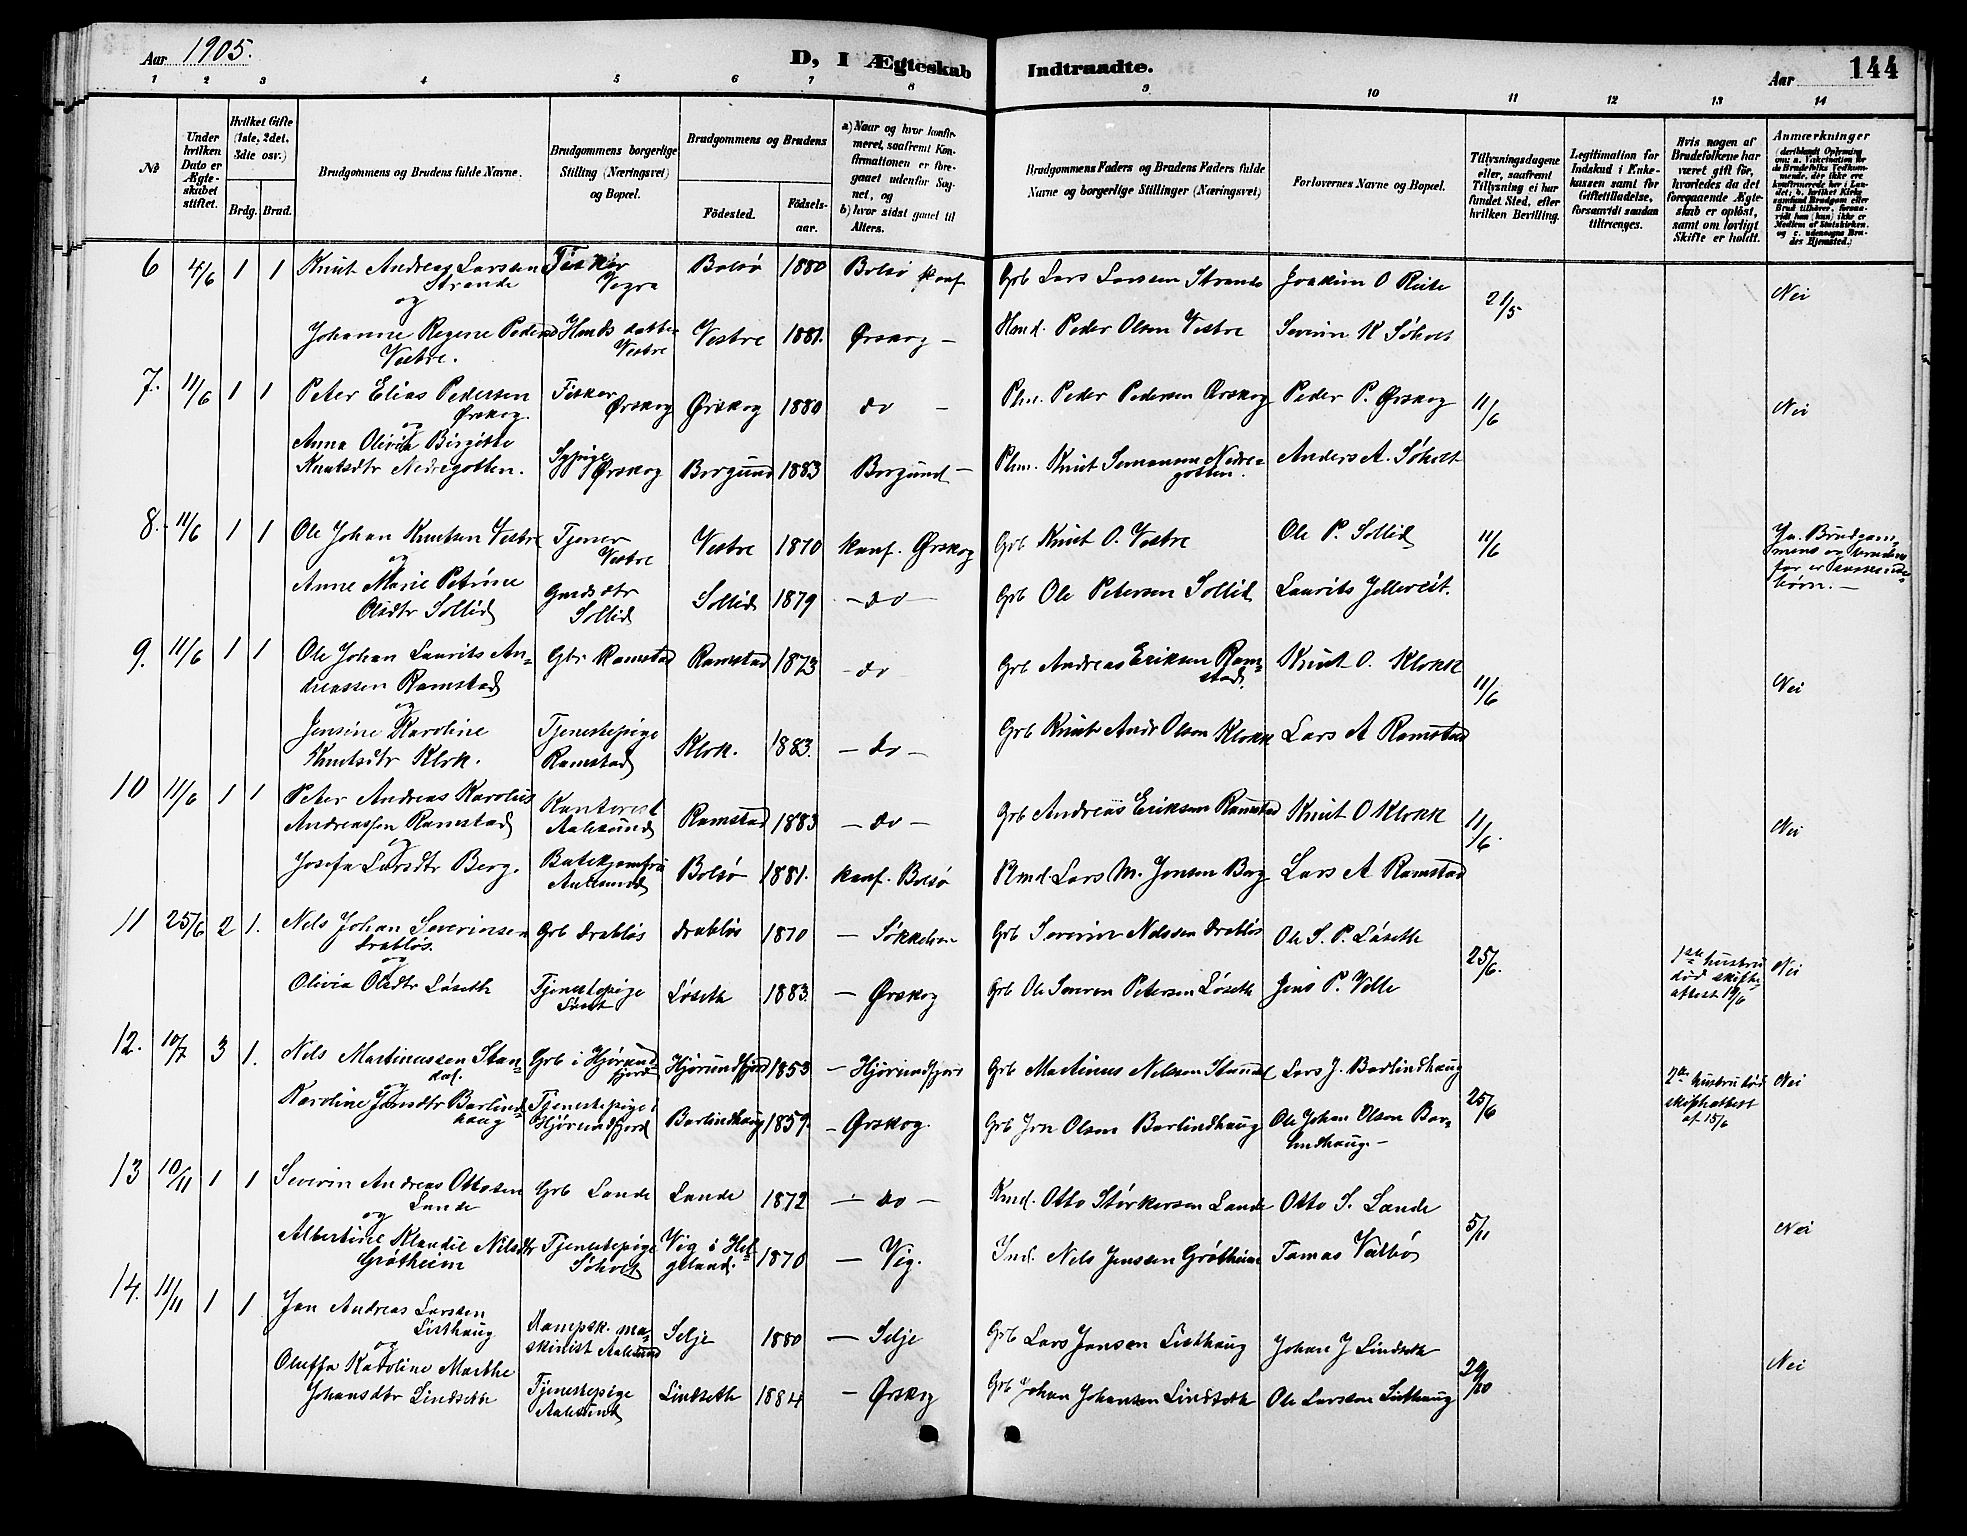 Aar 1905.
D, I Ægteskab Indtraadte.
Aar 144
1 2 3 4 5 6 7 8 9 10 11 12 13 14
No
Under hvilken Dato er Ægteskabet stiftet.
Hvilket Gifte (1ste, 2det, 3die osv.)
Brdg. Brud.
Brudgommens og Brudens fulde Navne.
Brudgommens borgerlige Stilling (Næringsvei) og Bopæl.
Brudgommens og Brudens
Födested.
Födselsaar.
a) Naar og hvor konfirmeret, saafremt Konfirmationen er foregaaet udenfor Sognet, og
b) hvor sidst gaaet til Alters.
Brudgommens Faders og Brudens Faders fulde Navne og borgerlige Stillinger (Næringsvei)
Forlovernes Navne og Bopæl.
Tillysningsdagene eller, saafremt Tillysning ei har fundet Sted, efter hvilken Bevilling.
Legitimation for Indskud i Enkekassen samt for Giftetilladelse, forsaavidt saadan tiltrænges.
Hvis nogen af Brudefolkene har været gift för, hvorledes da det foregaaende Ægteskab er oplöst, samt om lovligt Skifte er holdt.
Anmærkninger
6 4/6 1 1 Knut Andreas Larssen Strande Fisker Vigra Bolsø 1880 Bolsø konf Grb Lars Larssen Strande Joakim O Reite 21/5 Nei
og
Johanne Regine Peders Vestre. Vestre Vestre 1881. Ørskog - Hmd. Peder Olsen Vestre Severin K Søholt
7. 11/6 1 1 Peter Elias Pedersen Ørskog. Fisker Ørskog Ørskog 1880 do - Plm. Peder Pedersen Ørskog Peder P. Ørskog 11/6 Nei
og
Anna Olivia Birgitte Knutsdtr Nedregotten. Sypige Ørskog Borgund 1883 Borgund - Plm. Knut Nedregotten. Anders A. Søholt
8. 11/6 1 1 Ole Johan Knutsen Vestre Tjener Vestre Vestre 1870 konf. Ørskog Grb Knut O. Vestre Ole P. Sollid 11/6 Ja. Brudgommens og brudens far er børn. -
og
Anne Marie Petrine Olsdtr Sollid Gmds dtr Sollid Sollid 1879 - do - Grb Ole Petersen Sollid Laurits
9. 11/6 1 1 Ole Johan Laurits Andreassen Ramstad Gbr Ramstad Ramstad 1873 - do Grb Andreas Eriksen Ramstad. Knut O. Klokk 11/6 Nei
og
Jensine Karoline Knutsdtr Klok. Tjenestepige Ramstad Klok. 1883. - do - Grb Knut Andr Olsen Klokk Lars A Ramstad
10 11/6 1 1 Peter Andreas Karolus Andreassen Ramstad Kontorist Aalesund Ramstad 1883 - do - Grb Andreas Eriksen Ramstad Knut O Klokk 11/6. Nei
og
Josefa Larsdtr Berg. Butikjomfru Aalesund Bolsø 1881. konf. Bolsø Plmd. Lars M. Jonsen Berg Lars A Ramstad
11 25/6 2 1. Nels Johan Severinsen Drabløs. Grb Drabløs Drabløs 1870 - Søkkelven Grb Severin Nelssen Drabløs Ole S. P. Løseth 25/6. 1ste hustru død skifteattest 19/6 Nei
og
Olivia Olsdtr Løseth Tjenestepige Løset Løseth 1883. - Ørskog Grb Ole Petersen Løseth Jens P. Velle
12. 10/7 3 1. Nils Martinussen Standal. Grb i Hjørundfjord Hjørundfjord 1853 - Hjørundfjord Grb Martinus Nelsen Standal Lars J. Barlindhaug 25/6 2den hustru død skifteattest af 15/6 Nei
og
Karoline Jonsdtr Barlindhaug Tjenestepige i Hjørundfjord Barlindhaug 1859. - Ørskog. Grb Jon Olsen Barlindhaug Ole Johan Olsen Barlindhaug. -
13 10/11 1 1 Severin Andreas Ottosen Lande Grb Lande Lande 1872 - do - Kmd. Otto Størkersen Lande Otto S. Lande 5/11 Nei
og
Albertine Klaudie Nilsdtr Grøtheim Tjenestepige Søholt Vig i Helgeland. 1870 - Vig. Ind. Nels Jenssen Grøtheim Tomas Valbø
14. 11/11 1 1 Jon Andreas Larssen Listhaug Dampsk. maskinist Aalesund Selje 1880 - Selje Grb Lars Jonsen Listhaug Johan J Lindseth 29/10 Nei
og
Oluffa Karoline Marthe Johansdtr Lindseth Tjenestepige Aalesund Lindseth 1884 - Ørskog Grb Johan Johansen Lindseth Ole Larssen Listhaug